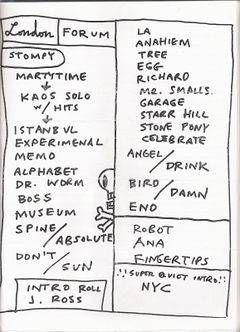 London FORUM
STOMPY
MARTYTIME
KAOS SOLO
W/ HITS
ISTANBUL
EXPERIMENAL
MEMO
ALPHABET
DR. WORM
BOSS
MUSEUM
SPINE/
ABSOLUTE
DON'T/
SUN
INTRO ROLL
J. ROSS
LA
ANAHIEM
TREE
EGG
RICHARD
MR. SMALLS
GARAGE
STARR HILL
STONE PONY
CELEBRATE
ANGEL/
DRINK
BIRD/
DAMN
ENO
ROBOT
ANA
FINGERTIPS
!! SUPER QUIET INTRO !!
NYC